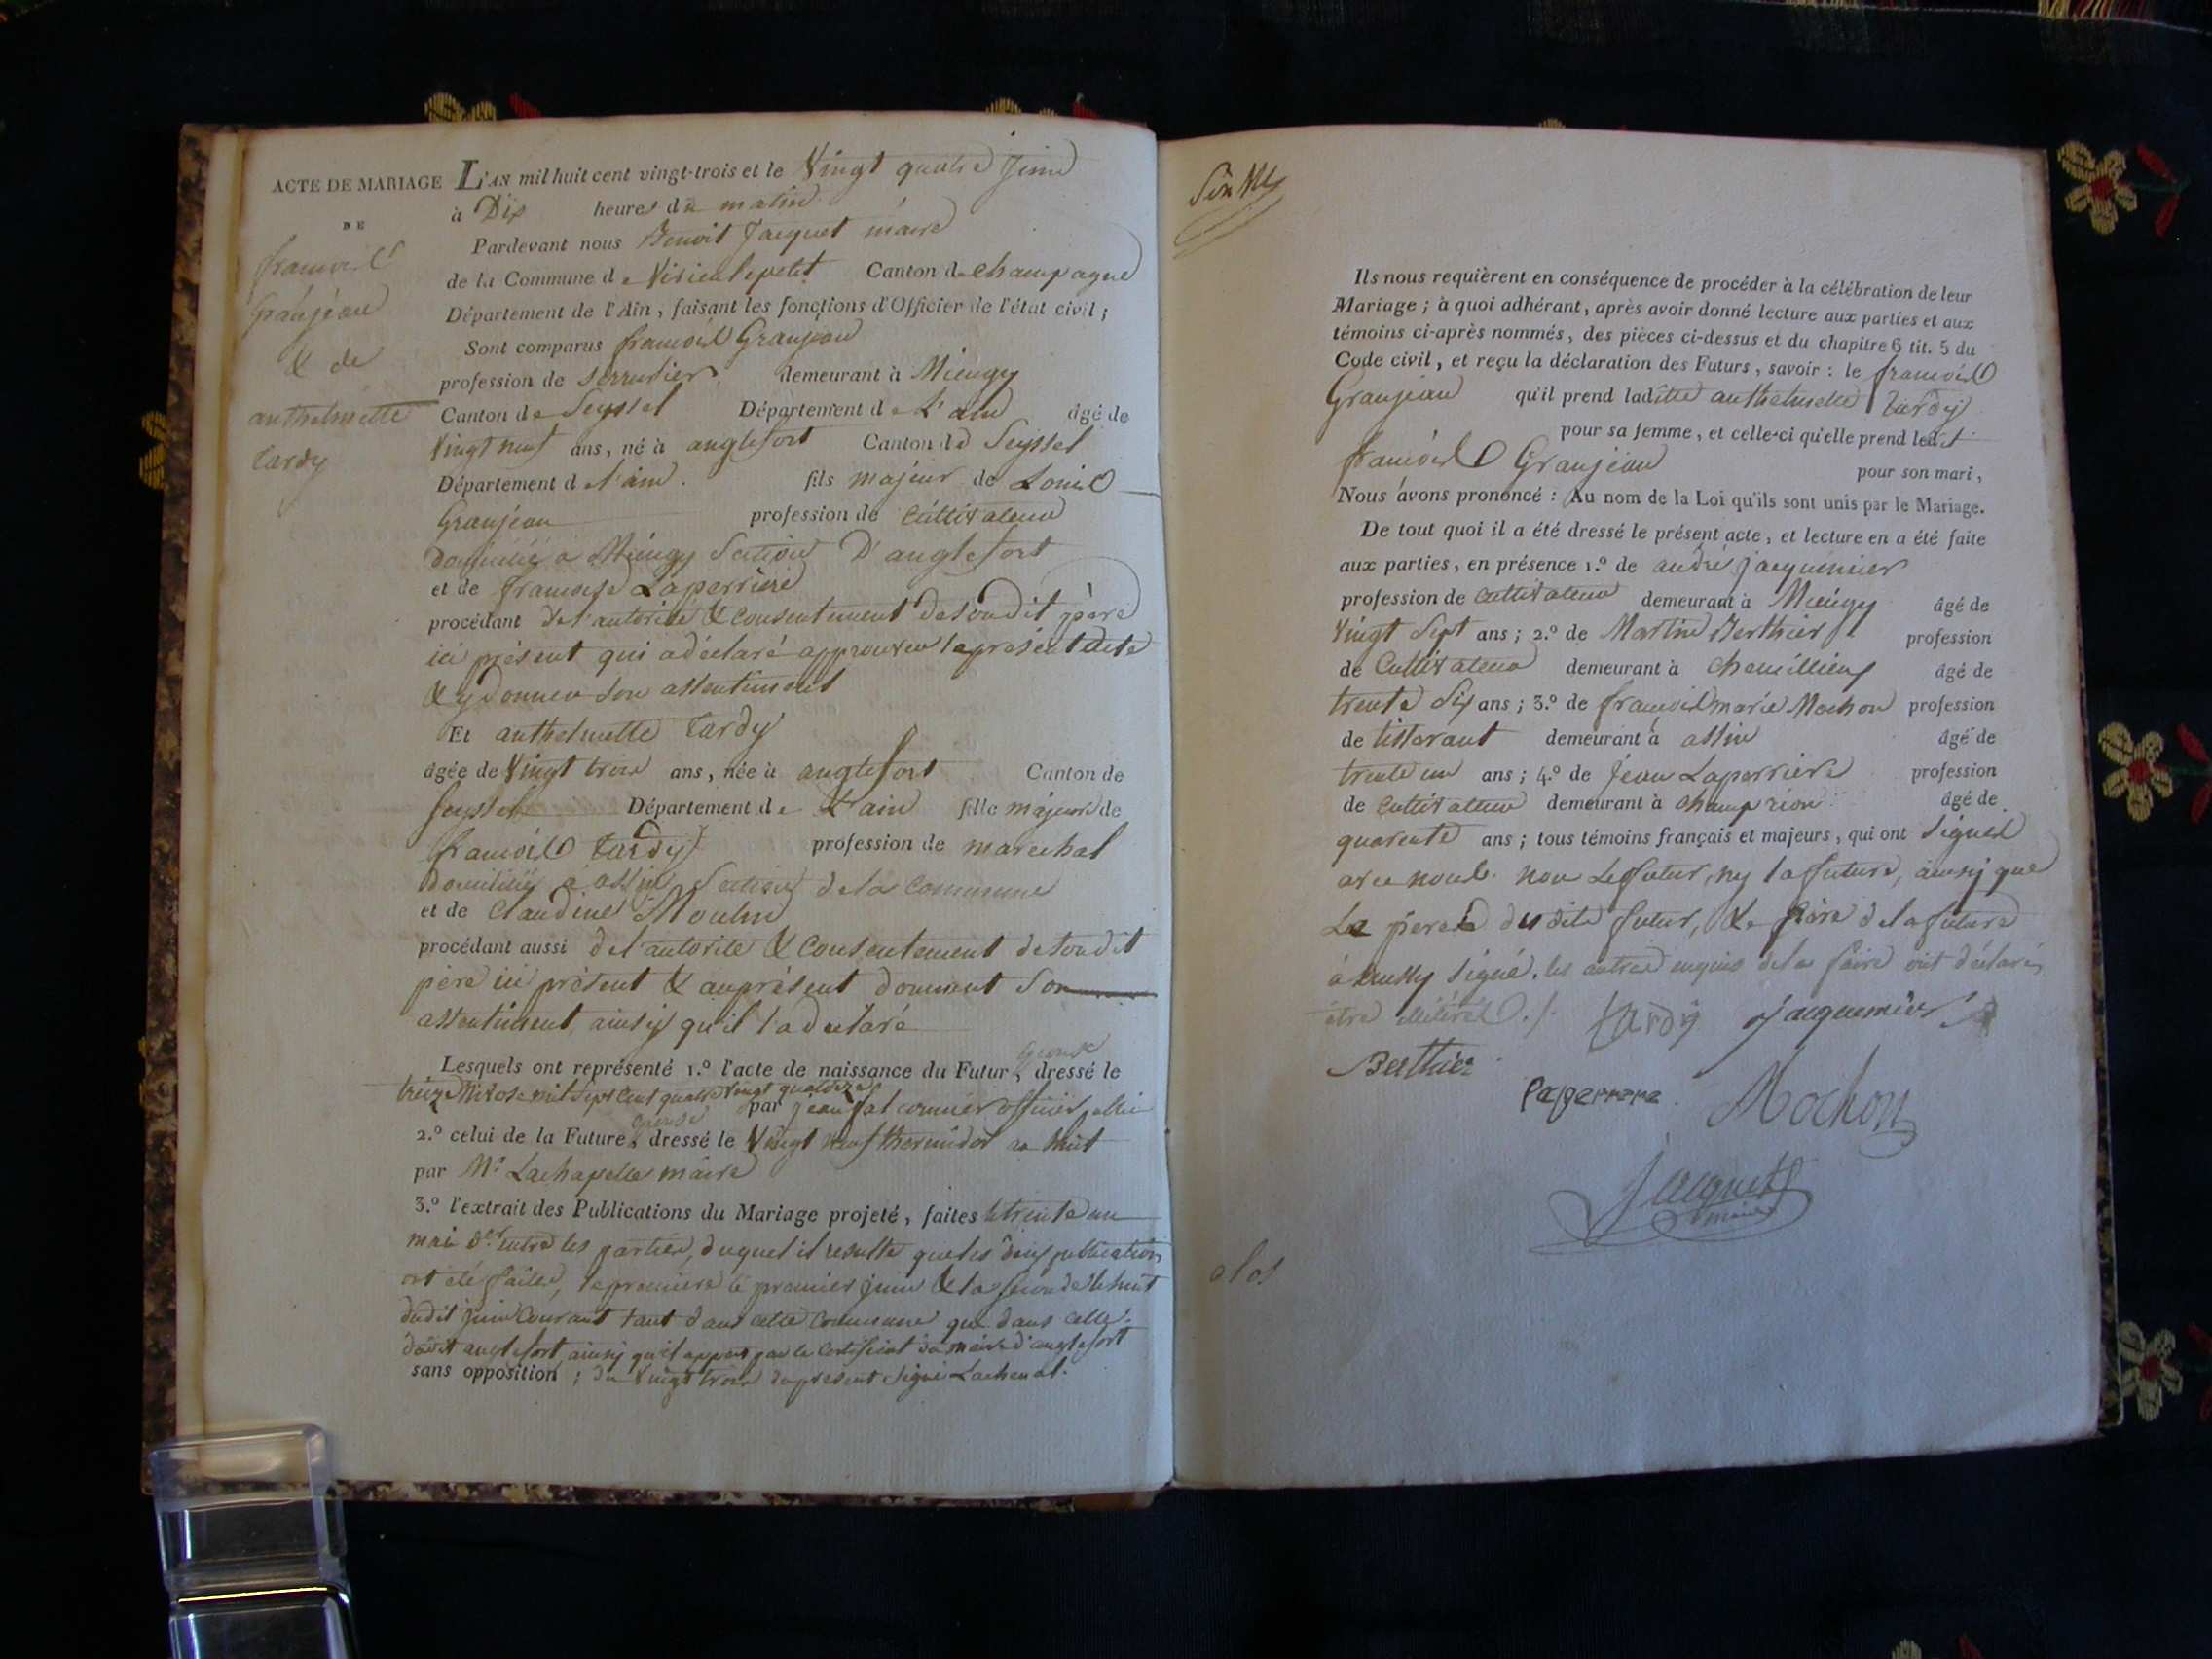 ACTE DE MARIAGE
DE
françois
Granjean
& de
anthelmette
tardy
L'AN mil huit cent vingt-trois et le Vingt quatre Juin
à Dix heures du matin
Pardevant nous Benoit Jacquet maire
de la Commune de Virieulepetit Canton de champagne
Département de l'Ain, faisant les fonctions d'Officier de l'état civil;
Sont comparus françois Granjean
profession de serrurier demeurant à Mieugy
Canton de Seyssel Département de L'ain âgé de
Vingt neuf ans, né à anglefort Canton de Seyssel
Département de l'ain. fils majeur de Louis
Granjean profession de cultivateur
domicilié a Mieugy Section D'anglefort
et de françoise Laperriere
procédant de l'autorite & consentement desondit père
ici présent qui a déclaré approuver le présent acte
& y donner son assentiment
Et anthelmette tardy
âgée de Vingt trois ans, née à anglefort Canton de
Seyssel Département de L'ain fille majeure de
françois tardy profession de marechal
domicilié a assin Section dela commune
et de Claudine Moulin
procédant aussi de l'autorite & consentement desondit
père ici présent & donnant Son
assentiment, ainsy qu'il l'a declaré
Lesquels ont représenté 1.º l'acte de naissance du Futur, dressé le
treize Nivose mil sept cent quatre vingt quatorze
par jean officier public
2.º celui de la Future, dressé le Vingt neuf thermidor an huit
par Mr Lachapelle maire
3.º l'extrait des Publications du Mariage projeté, faites le trente un
mai der entre les parties, duquel il resulte que les deux publications
ont été faites, la premiere le premier juin & la seconde le huit
dudit juin courant tant dans cette commune que dans celle
dudit anglefort, ainsy qu'il appert par le certificat du maire d'anglefort
sans opposition; du Vingt trois du présent signé Lachenal.
Ils nous requièrent en conséquence de procéder à la célébration de leur
Mariage; à quoi adhérant, après avoir donné lecture aux parties et aux
témoins ci-après nommés, des pièces ci-dessus et du chapitre 6 tit. 5 du
Code civil, et reçu la déclaration des Futurs, savoir: le françois
Granjean qu'il prend laditte anthelmette tardy
pour sa femme, et celle-ci qu'elle prend ledit
françois Granjean pour son mari,
Nous avons prononcé: Au nom de la Loi qu'ils sont unis par le Mariage.
De tout quoi il a été dressé le présent acte, et lecture en a été faite
aux parties, en présence 1.º de andré jacquemier
profession de cultivateur demeurant à Mieugy âgé de
Vingt Sept ans; 2.º de Martin Berthier profession
de Cultivateur demeurant à chemillieu âgé de
trente Six ans; 3.º de françois marie Mochon profession
de tisserant demeurant à assin âgé de
trente un ans; 4.º de Jean Laperriere profession
de cultivateur demeurant à champrion âgé de
quarente ans; tous témoins français et majeurs, qui ont signés
avec nous. non Le futur, ny la future, ainsy que
Le père du dite futur, Le père de la future
à aussy signé. les autres enquis dela faire ont déclarés
être illitérés ./.
tardy jacquemier
Berthier
Laperrere Mochon
Jacquet
maire
clos